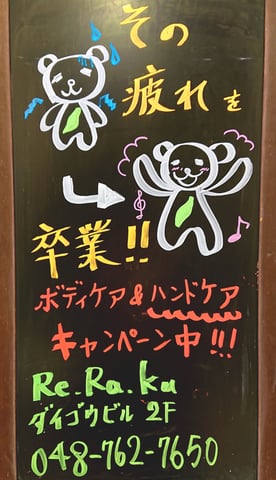 その
疲れを
卒業!!
ボディケア&ハンドケア
キャンペーン中!!!
Re.Ra.ku
ダイゴウビル 2F
048-762-7650